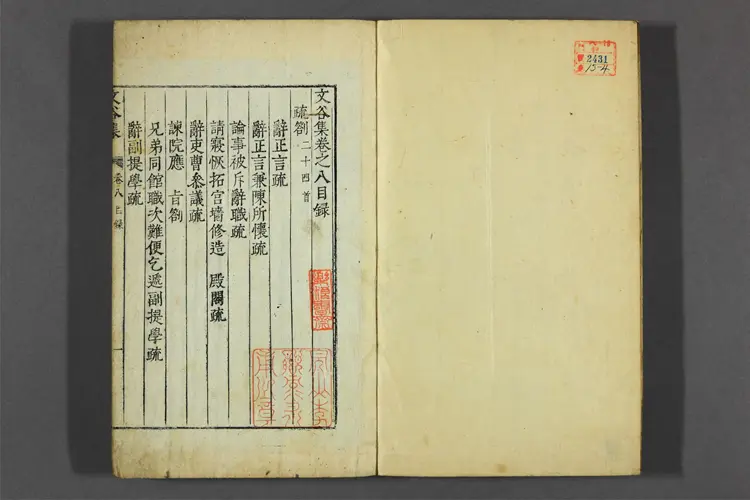 文谷集卷之八目録
疏劄二十四首
辭正言疏
辭正言兼陳所懷疏
論事被斥辭職疏
請寢恢拓宮墻修造 殿閣疏
辭吏曹參議疏
諫院應 旨劄
兄弟同館職次難便乞遞副提學疏
辭副提學疏
文谷集
卷八目錄
一
2431
15-4